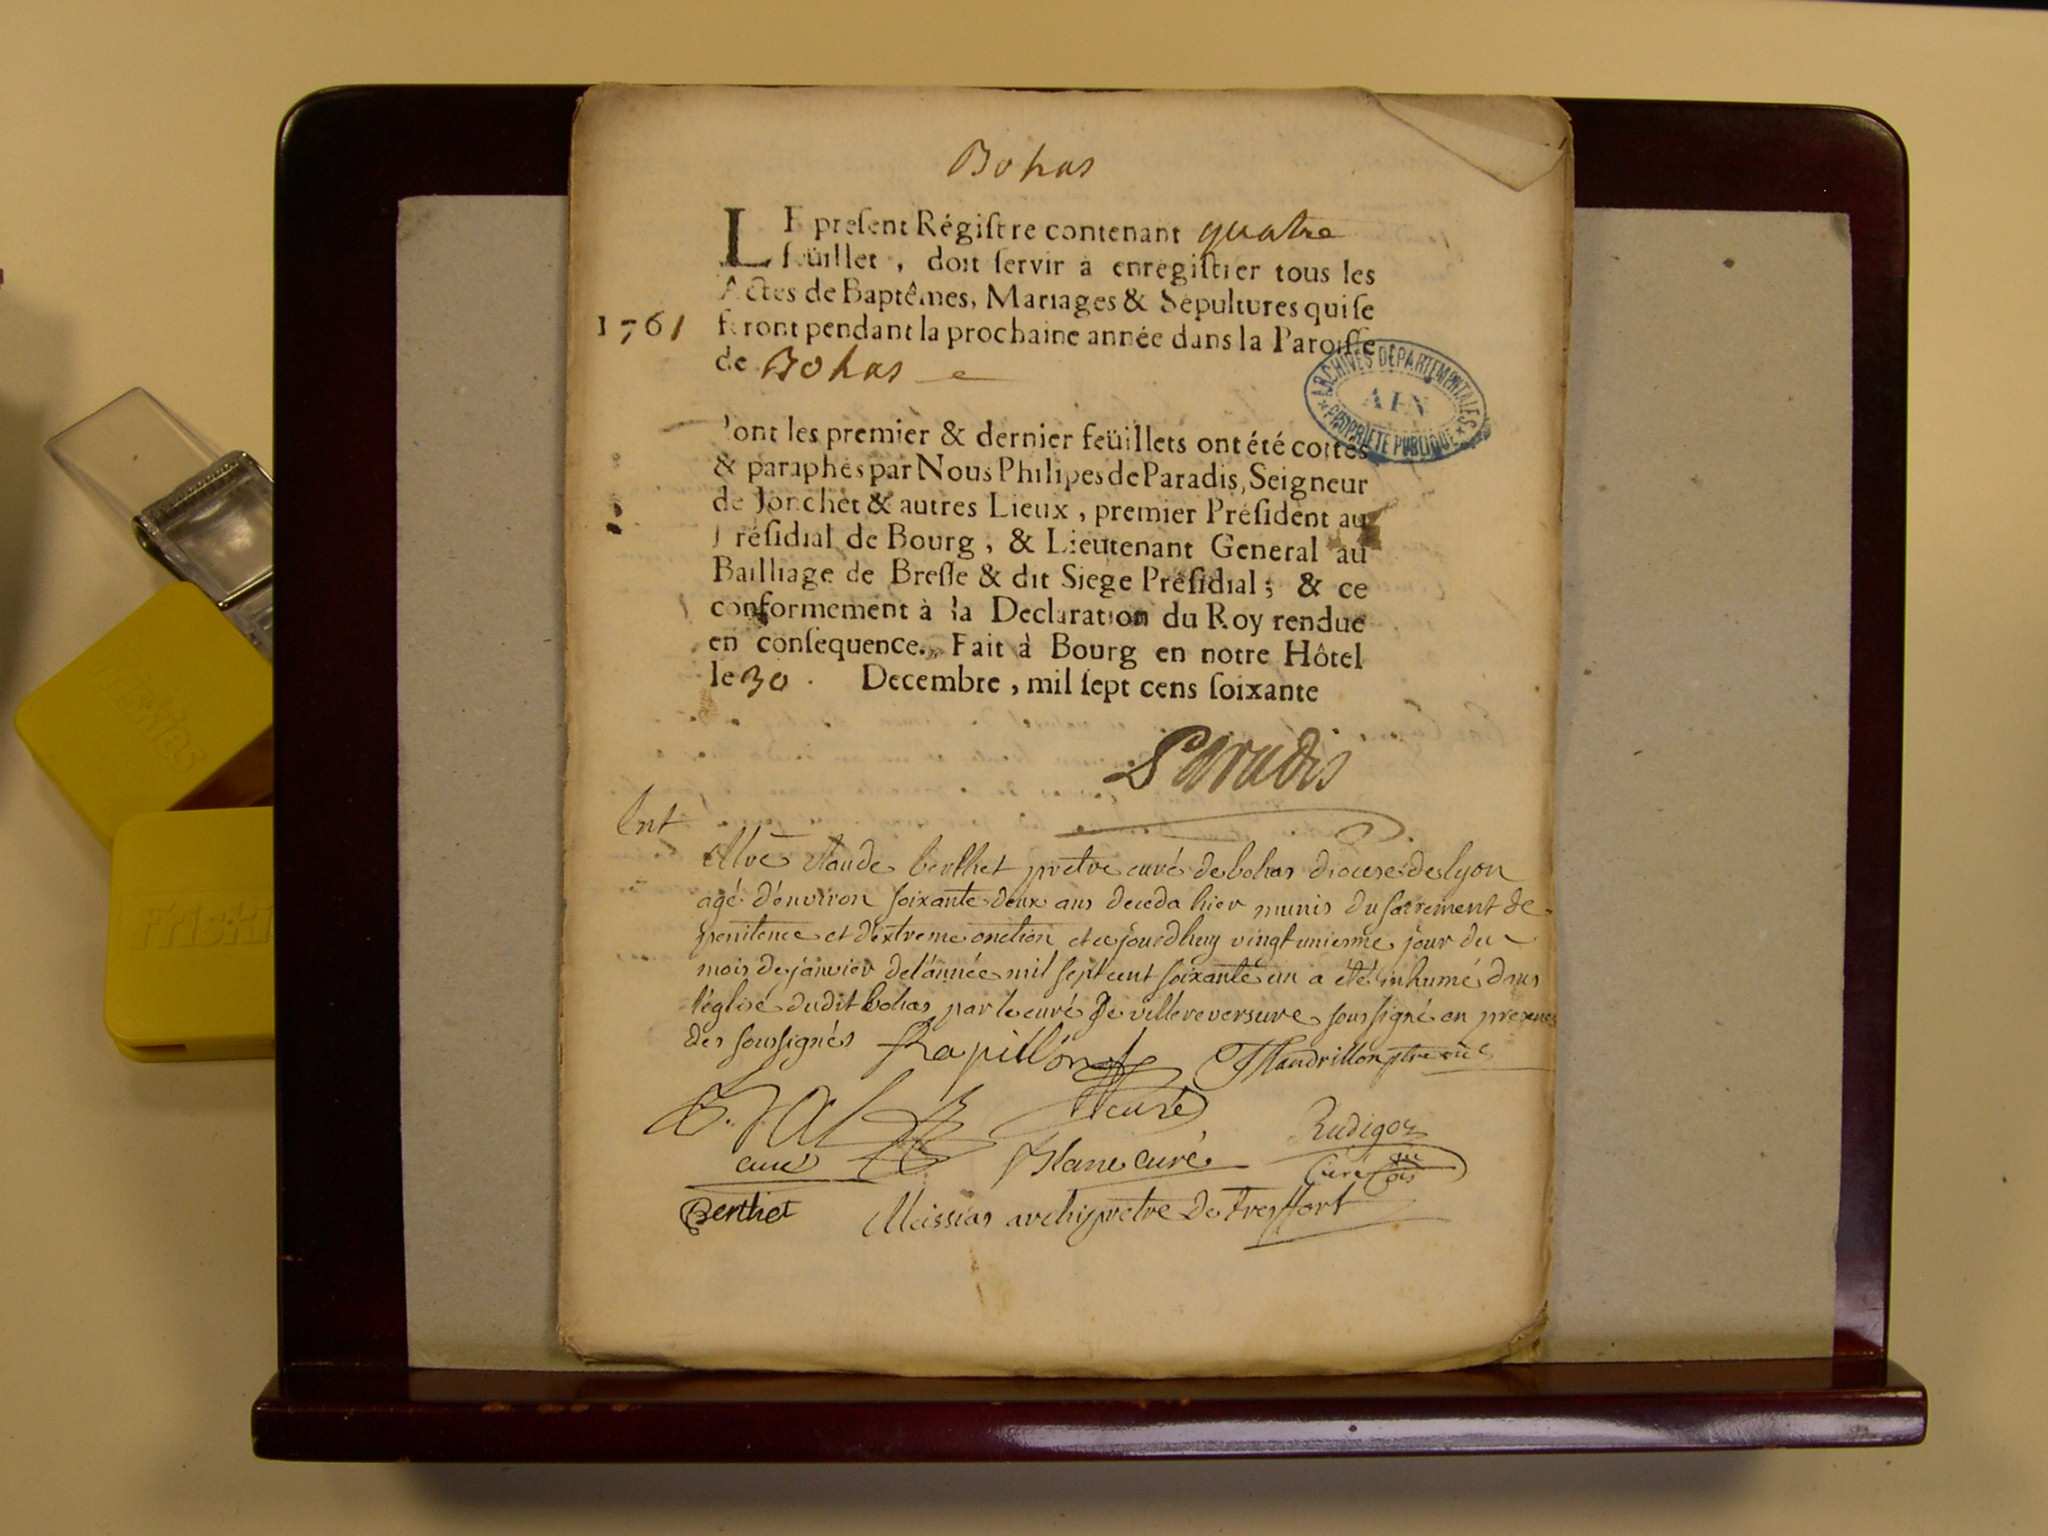 Bohas
LE preſent Régiſtre contenant quatre
feüillet, doit ſervir à enrégiſtrer tous les
Actes de Baptêmes, Mariages & Sépultures qui ſe
1761 feront pendant la prochaine année dans la Paroiſſe
de Bohas
ARCHIVES DÉPARTEMENTALES
AIN
PROPRIÉTÉ PUBLIQUE
dont les premier & dernier feüillets ont été cottés
& paraphés par Nous Philipes de Paradis, Seigneur
de Jonchet & autres Lieux, premier Préſident au
Préſidial de Bourg, & Lieutenant General au
Bailliage de Breſſe & dit Siege Préſidial; & ce
conformement à la Declaration du Roy rendue
en conſequence. Fait à Bourg en notre Hôtel
le 30. Decembre, mil ſept cens ſoixante
Paradis
Ent
Mre Claude berthet pretre curé de bohas diocese de lyon
agé d'environ soixante deux ans deceda hier munis du sacrement de
penitence et d'extreme onction et ce jourdhuy vingt unieme jour du
mois de janvier de l'année mil sept cent soixante un a été inhumé dans
l'église dudit bohas par le curé de villereversure soussigné en presence
des soussignés Rapillon Mandrillon ptre
curé
curé Blanc curé Rudigoz
curé
Berthet Meissias archipretre de treffort
Friskies
Friski